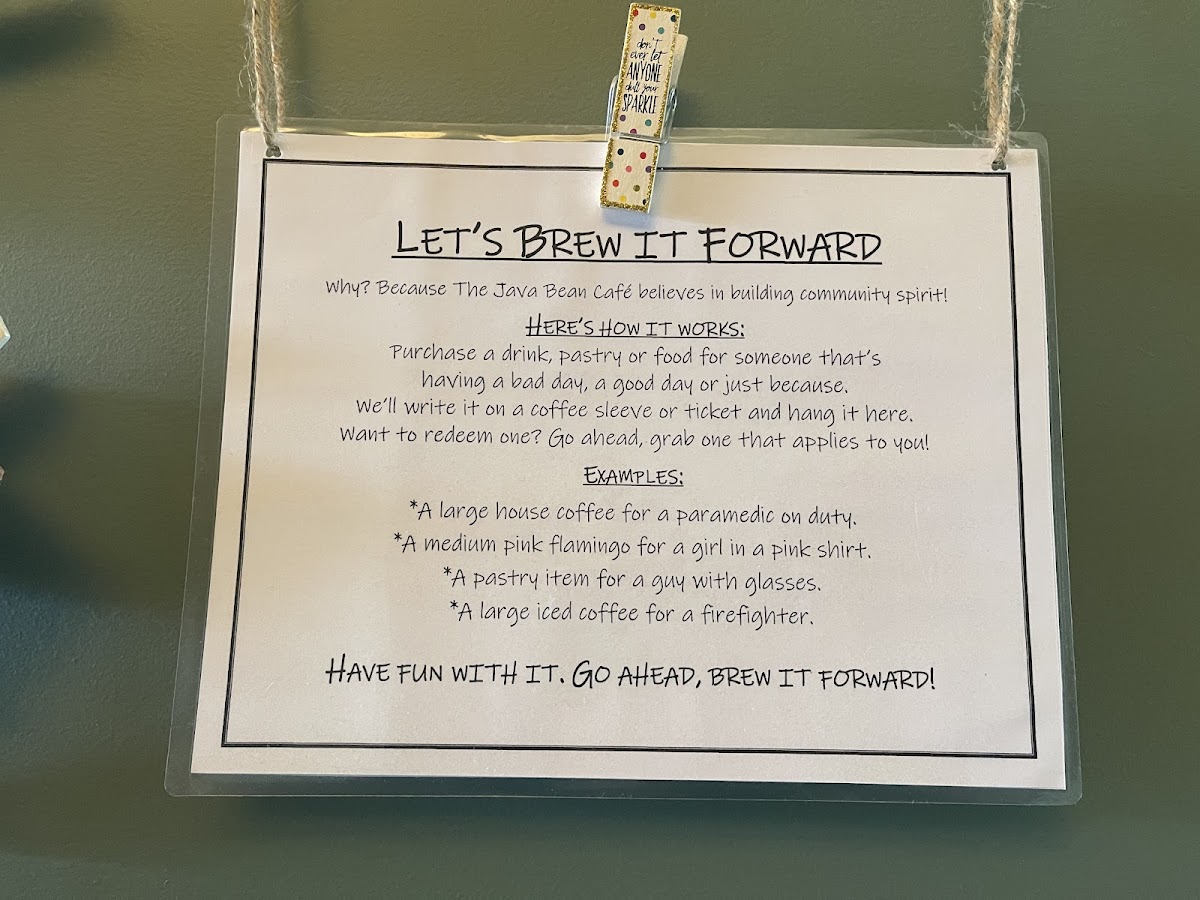 don't
ever let
ANYONE
dull your
SPARKLE
LET'S BREW IT FORWARD
Why? Because The Java Bean Café believes in building community spirit!
HERE'S HOW IT WORKS:
Purchase a drink, pastry or food for someone that's
having a bad day, a good day or just because.
We'll write it on a coffee sleeve or ticket and hang it here.
Want to redeem one? Go ahead, grab one that applies to you!
EXAMPLES:
*A large house coffee for a paramedic on duty.
*A medium pink flamingo for a girl in a pink shirt.
*A pastry item for a guy with glasses.
*A large iced coffee for a firefighter.
HAVE FUN WITH IT. GO AHEAD, BREW IT FORWARD!